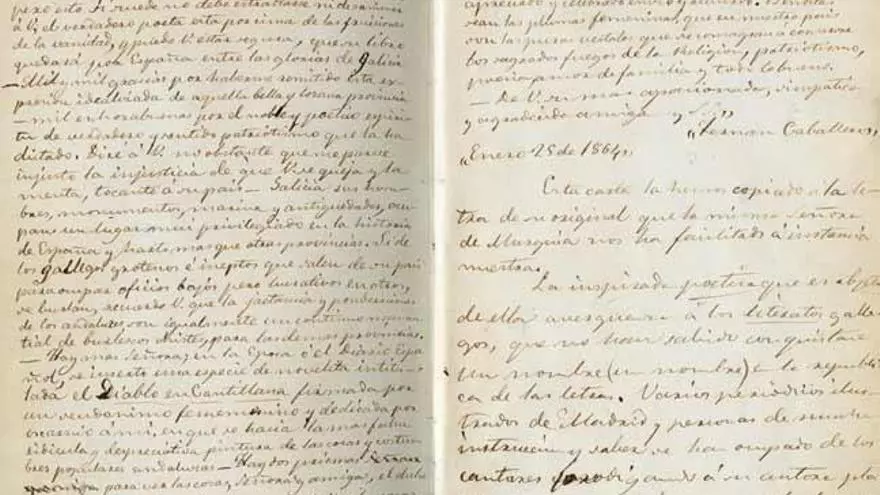 pero esto
á V. el verdadero poeta está por cima de las fruiciones
de la vanidad, y puede V. estar segura, que su libro
quedará por España entre las glorias de Galicia
— Mil y mil gracias por haberme remitido esta
idealizada de aquella bella y lozana provincia
— mil enhorabuenas por el noble y poético espíri-
tu de verdadero y sentido patriotismo que la ha
dictado. Diré á V. no obstante que me parece
injusto la injusticia de que V. se queja y la-
menta, tocante á su país — Galicia sus hom-
bres, monumentos, marina y antiguedades, ocu-
pan un lugar mui privilegiado en la historia
de España y harto mas que otras provincias. Si de
los gallegos groteros é ineptos que salen de su país
para ocupar oficios bajos pero lucrativos en otros,
se burlan, recuerde V. que la jactancia y
de los andaluces son igualmente un contínuo manan-
tial de burlescos chistes, para las demas provincias.
— Hay mas Señora; en la Epoca ó el Diario Espa-
ñol, se insertó una especie de novelita intitu-
lada el Diablo en Cantillana firmada por
un seudonimo femenino y dedicada por
á mí, en que se hacia la mas falsa
ridícula y depreciativa pintura de las cosas y costum-
bres populares andaluzas — Hay dos prismas
para ver las cosas, señora y amiga, el dulce
sean las plumas femeninas, que en nuestro país
son las puras vestales que se consagran á conservar
los sagrados fuegos de la Religion, patriotismo,
poesía, amor de familia y todo lo bueno.
— De V. su mas apasionada, simpática
y agradecida amiga y
"Fernan Caballero"
"Enero 25 de 1864"
Esta carta la hemos copiado á la le-
tra de su original que la misma señora
de Murguía nos ha facilitado á instancia
nuestra.
La inspirada poetisa que es objeto
de ella avergüenza á los literatos galle-
gos, que no han sabido conquistar
un nombre (un nombre) en la republi-
ca de las letras. Varios periodicos ilus-
trados de Madrid y personas de mucha
instrucción y saber se han ocupado de los
cantares prodigando á su autora plá